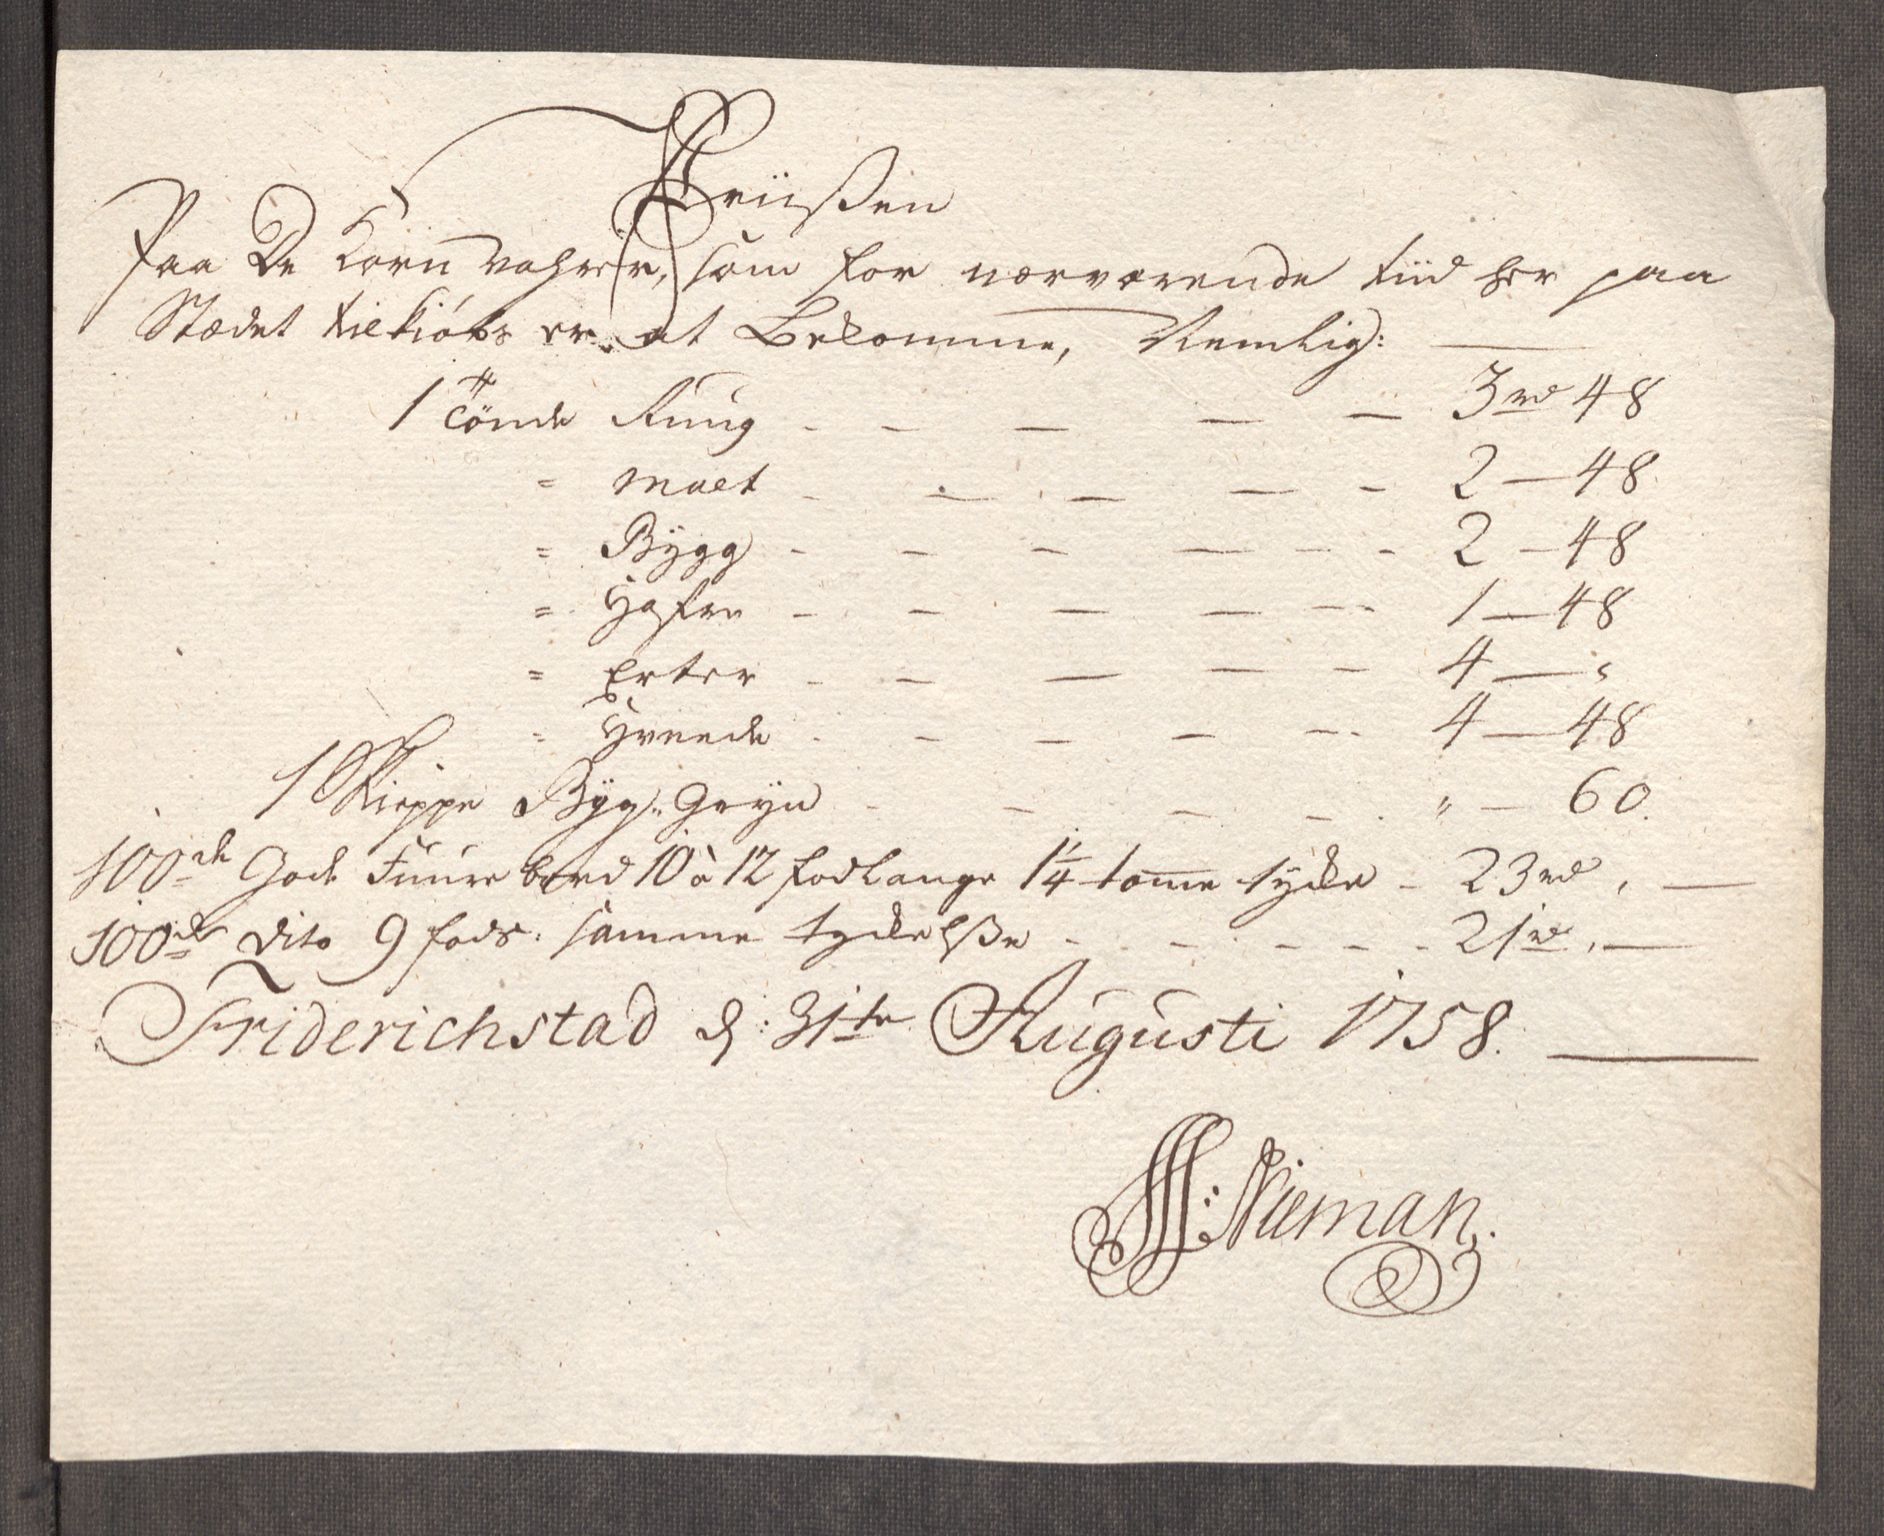 Priisen
Paa De Korn vahrer, som for nærværende tiid her paa
Stædet til kiøbs er at Bekomme, Nemlig: —
1 Tönde Ruug - - - - - 3 rd 48
" Malt - - - - - 2 — 48
" Bygg - - - - - 2 — 48
" Hafre - - - - - 1 — 48
" Erter - - - - - 4 — "
" Hveede - - - - - 4 — 48
1 Skieppe Byg: Gryn - - - - " — 60.
100de Gode Fuure bord 10 à 12 fod lange 1 1/4 tomme tycke - 23 rd , —
100de Dito 9 fods: samme tyckelsße - - - - - 21 rd , —
Friderichstad d: 31te Augusti 1758. —
Nieman.